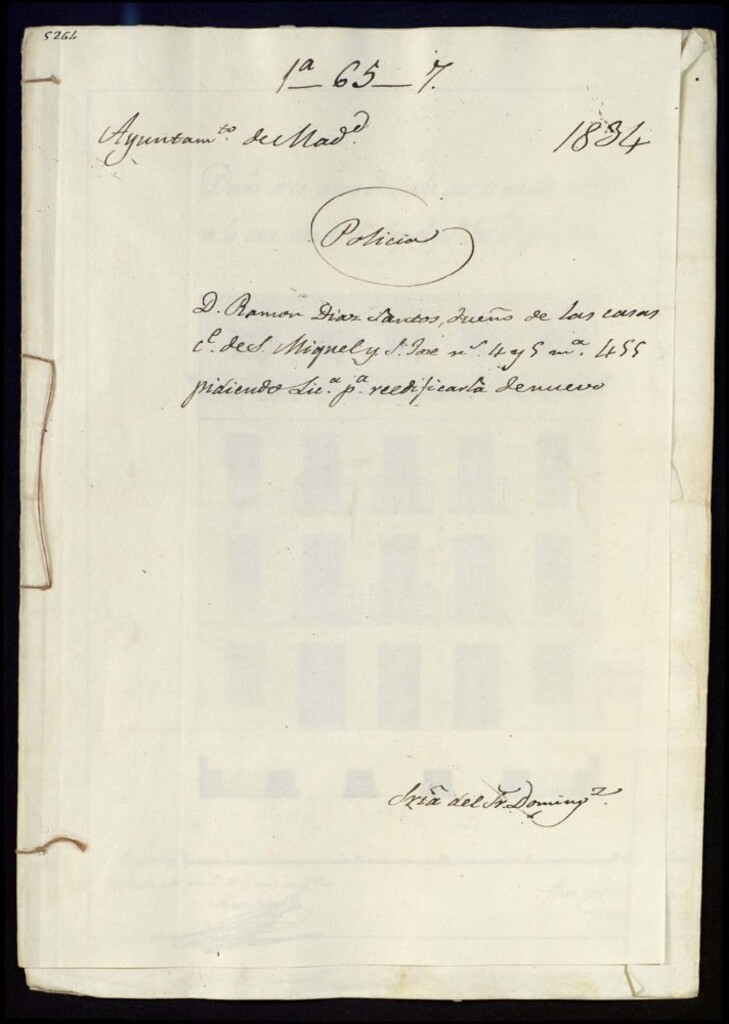 5264
1ª_65_7.
Ayuntamto. de Madd.
1834
Policia
D. Ramon Diaz Santos, dueño de las casas
ce. de S. Miguel y S. José ns. 4 y 5 mª. 455
pidiendo Lica. pª. reedificarla denuevo
Sria del Sr. Domingz.